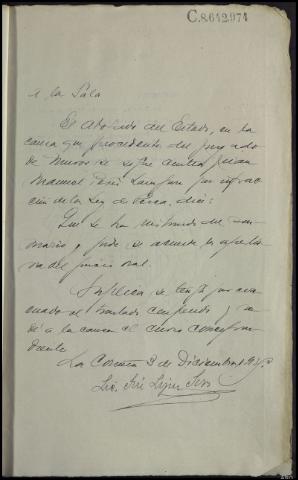 C.8642971
A la Sala
El Abogado del Estado, en la
causa que procedente del Juzgado
de Muros se sigue contra Juan
Manuel por infrac
ción de la Ley de Pesca, dice:
Que se ha instruido del su-
mario y pide se acuerde la apertu-
ra del juicio oral.
Suplica se tenga por eva-
cuado el traslado conferido y se
dé a la causa el curso correspon-
diente
La Coruña 3 de Diciembre
Lic. José López